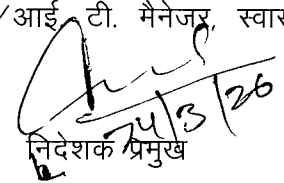 /आई. टी. मैनेजर, स्वास
24/3/26
निदेशक प्रमुख